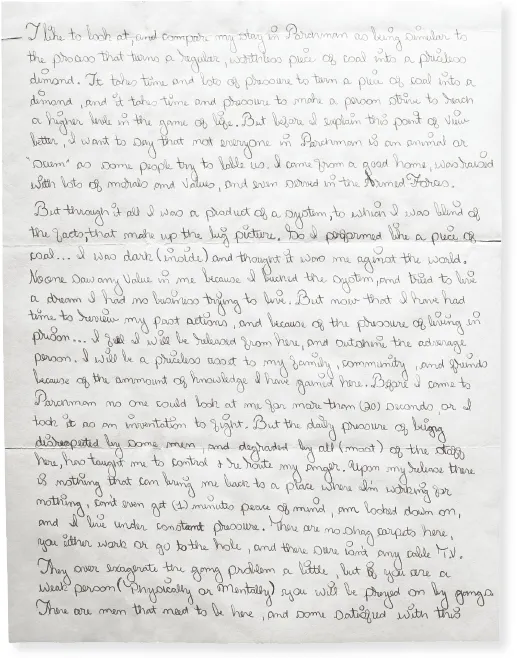 I like to look at, and compare my stay in Parchman as being similar to
the process that turns a regular, worthless piece of coal into a priceless
dimond. It takes time and lots of pressure to turn a piece of coal into a
dimond, and it takes time and pressure to make a person strive to reach
a higher levle in the game of life. But before I explain this point of view
better, I want to say that not everyone in Parchman is an animal or
"Scum" as some people try to lable us. I came from a good home, was raised
with lots of morals and values, and even served in the Armed Forces.
But through it all I was a product of a system, to which I was blind of
the facts, that make up the big picture. So I preformed like a piece of
coal... I was dark (inside) and thought it was me against the world.
No one saw any value in me because I bucked the system, and tried to live
a dream I had no business trying to live. But now that I have had
time to review my past actions, and because of the pressure of living in
prison... I feel I will be released from here, and outshine the adverage
person. I will be a priceless asset to my family, community, and friends
because of the ammount of knowledge I have gained here. Before I came to
Parchman no one could look at me for more than (20) seconds, or I
took it as an inventation to fight. But the daily pressure of being
disrespected by some men, and degraded by all (most) of the staff
here, has taught me to control + re route my anger. Upon my release there
is nothing that can bring me back to a place where I'm working for
nothing, cant even get (1) minutes peace of mind, am looked down on,
and I live under constant pressure. There are no shag carpets here,
you either work or go to the hole, and there sure isnt any cable T.V.
They over exagerate the gang problem a little, but if you are a
weak person (Physically or Mentally) you will be preyed on by gangs
There are men that need to be here, and some satisfied with this